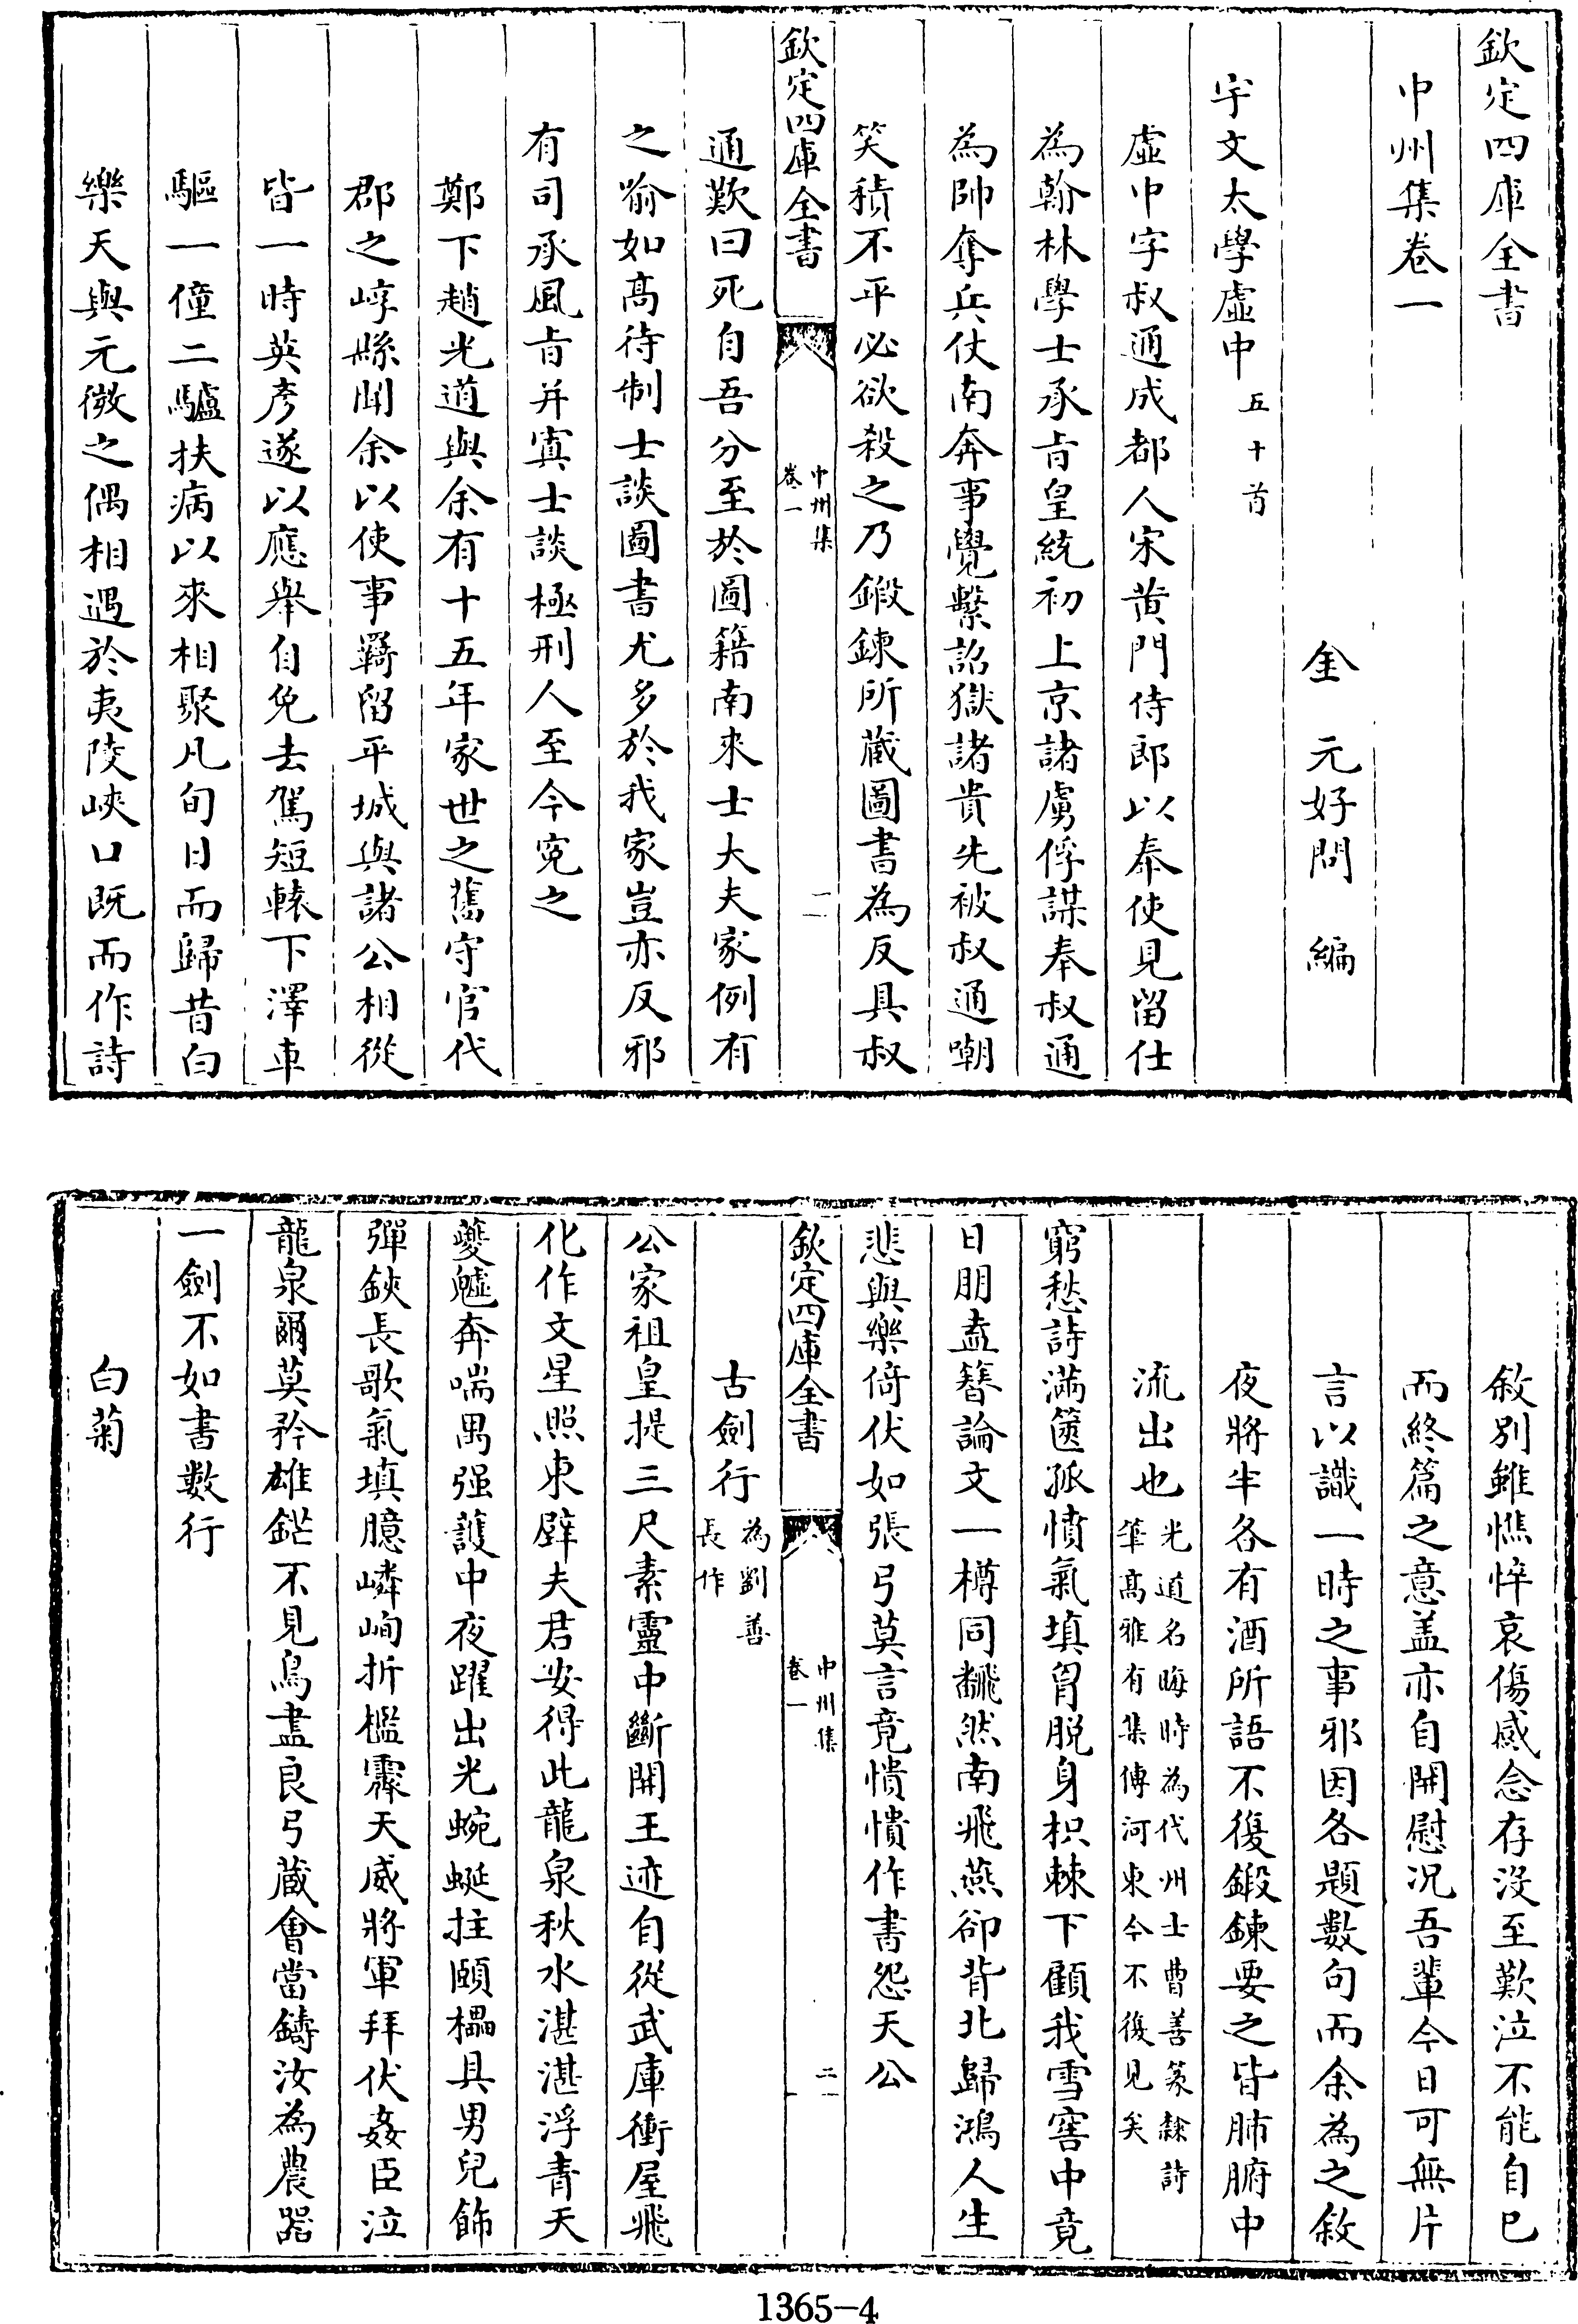 欽定四庫全書
中州集卷一
金 元好問 編
宇文太學虛中 五十首
虛中字叔通成都人宋黃門侍郎以奉使見留仕
為翰林學士承㫖皇統初上京諸虜俘謀奉叔通
為帥奪兵仗南奔事覺繫詔獄諸貴先被叔通嘲
笑積不平必欲殺之乃鍛鍊所蔵圖書為反具叔
欽定四庫全書
中州集
卷一
一
通歎曰死自吾分至於圖籍南來士大夫家例有
之喻如髙待制士談圖書尤多於我家豈亦反邪
有司承風㫖并寘士談極刑人至今寃之
鄭下趙光道與余有十五年家世之舊守官代
郡之崞縣聞余以使事羇留平城與諸公相從
皆一時英彥遂以應舉自免去駕短轅下澤車
驅一僮二驢扶病以來相聚凡旬日而歸昔白
樂天與元微之偶相遇於夷陵峽口既而作詩
敘別雖憔悴哀傷感念存沒至歎泣不能自已
而終篇之意盖亦自開慰况吾輩今日可無片
言以識一時之事邪因各題數句而余為之敘
夜將半各有酒所語不復鍛鍊要之皆肺腑中
流出也 光道名晦時為代州士曹善篆隸詩
筆髙雅有集傳河東今不復見矣
窮愁詩滿篋孤憤氣填胷脫身枳棘下顧我雪窖中竟
日朋盍簪論文一樽同飜然南飛燕卻背北歸鴻人生
悲與樂倚伏如張弓莫言竟憒憒作書怨天公
欽定四庫全書
中州集
卷一
二
古劍行 為劉善
長作
公家祖皇提三尺素靈中斷開王迹自從武庫衝屋飛
化作文星照東壁夫君安得此龍泉秋水湛湛浮青天
夔魖奔喘禺强護中夜躍出光蜿蜒拄頤櫑具男兒飾
彈鋏長歌氣填臆嶙峋折檻霽天威將軍拜伏姦臣泣
龍泉爾莫矜雄鋩不見鳥盡良弓蔵會當鑄汝為農器
一劍不如書數行
白菊
1365-4